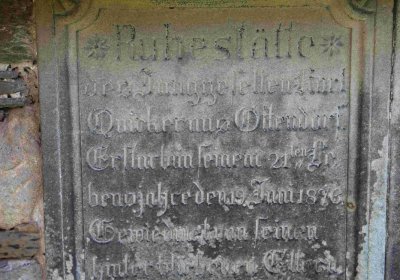 * Ruhestätte *
des Junggesellen Karl
Quicker aus Ottendorf
Er starb in seinem 21ten Le
bensjahre den 12. Juni 1876
Gewidmet von seinen
hinterbliebenen Eltern